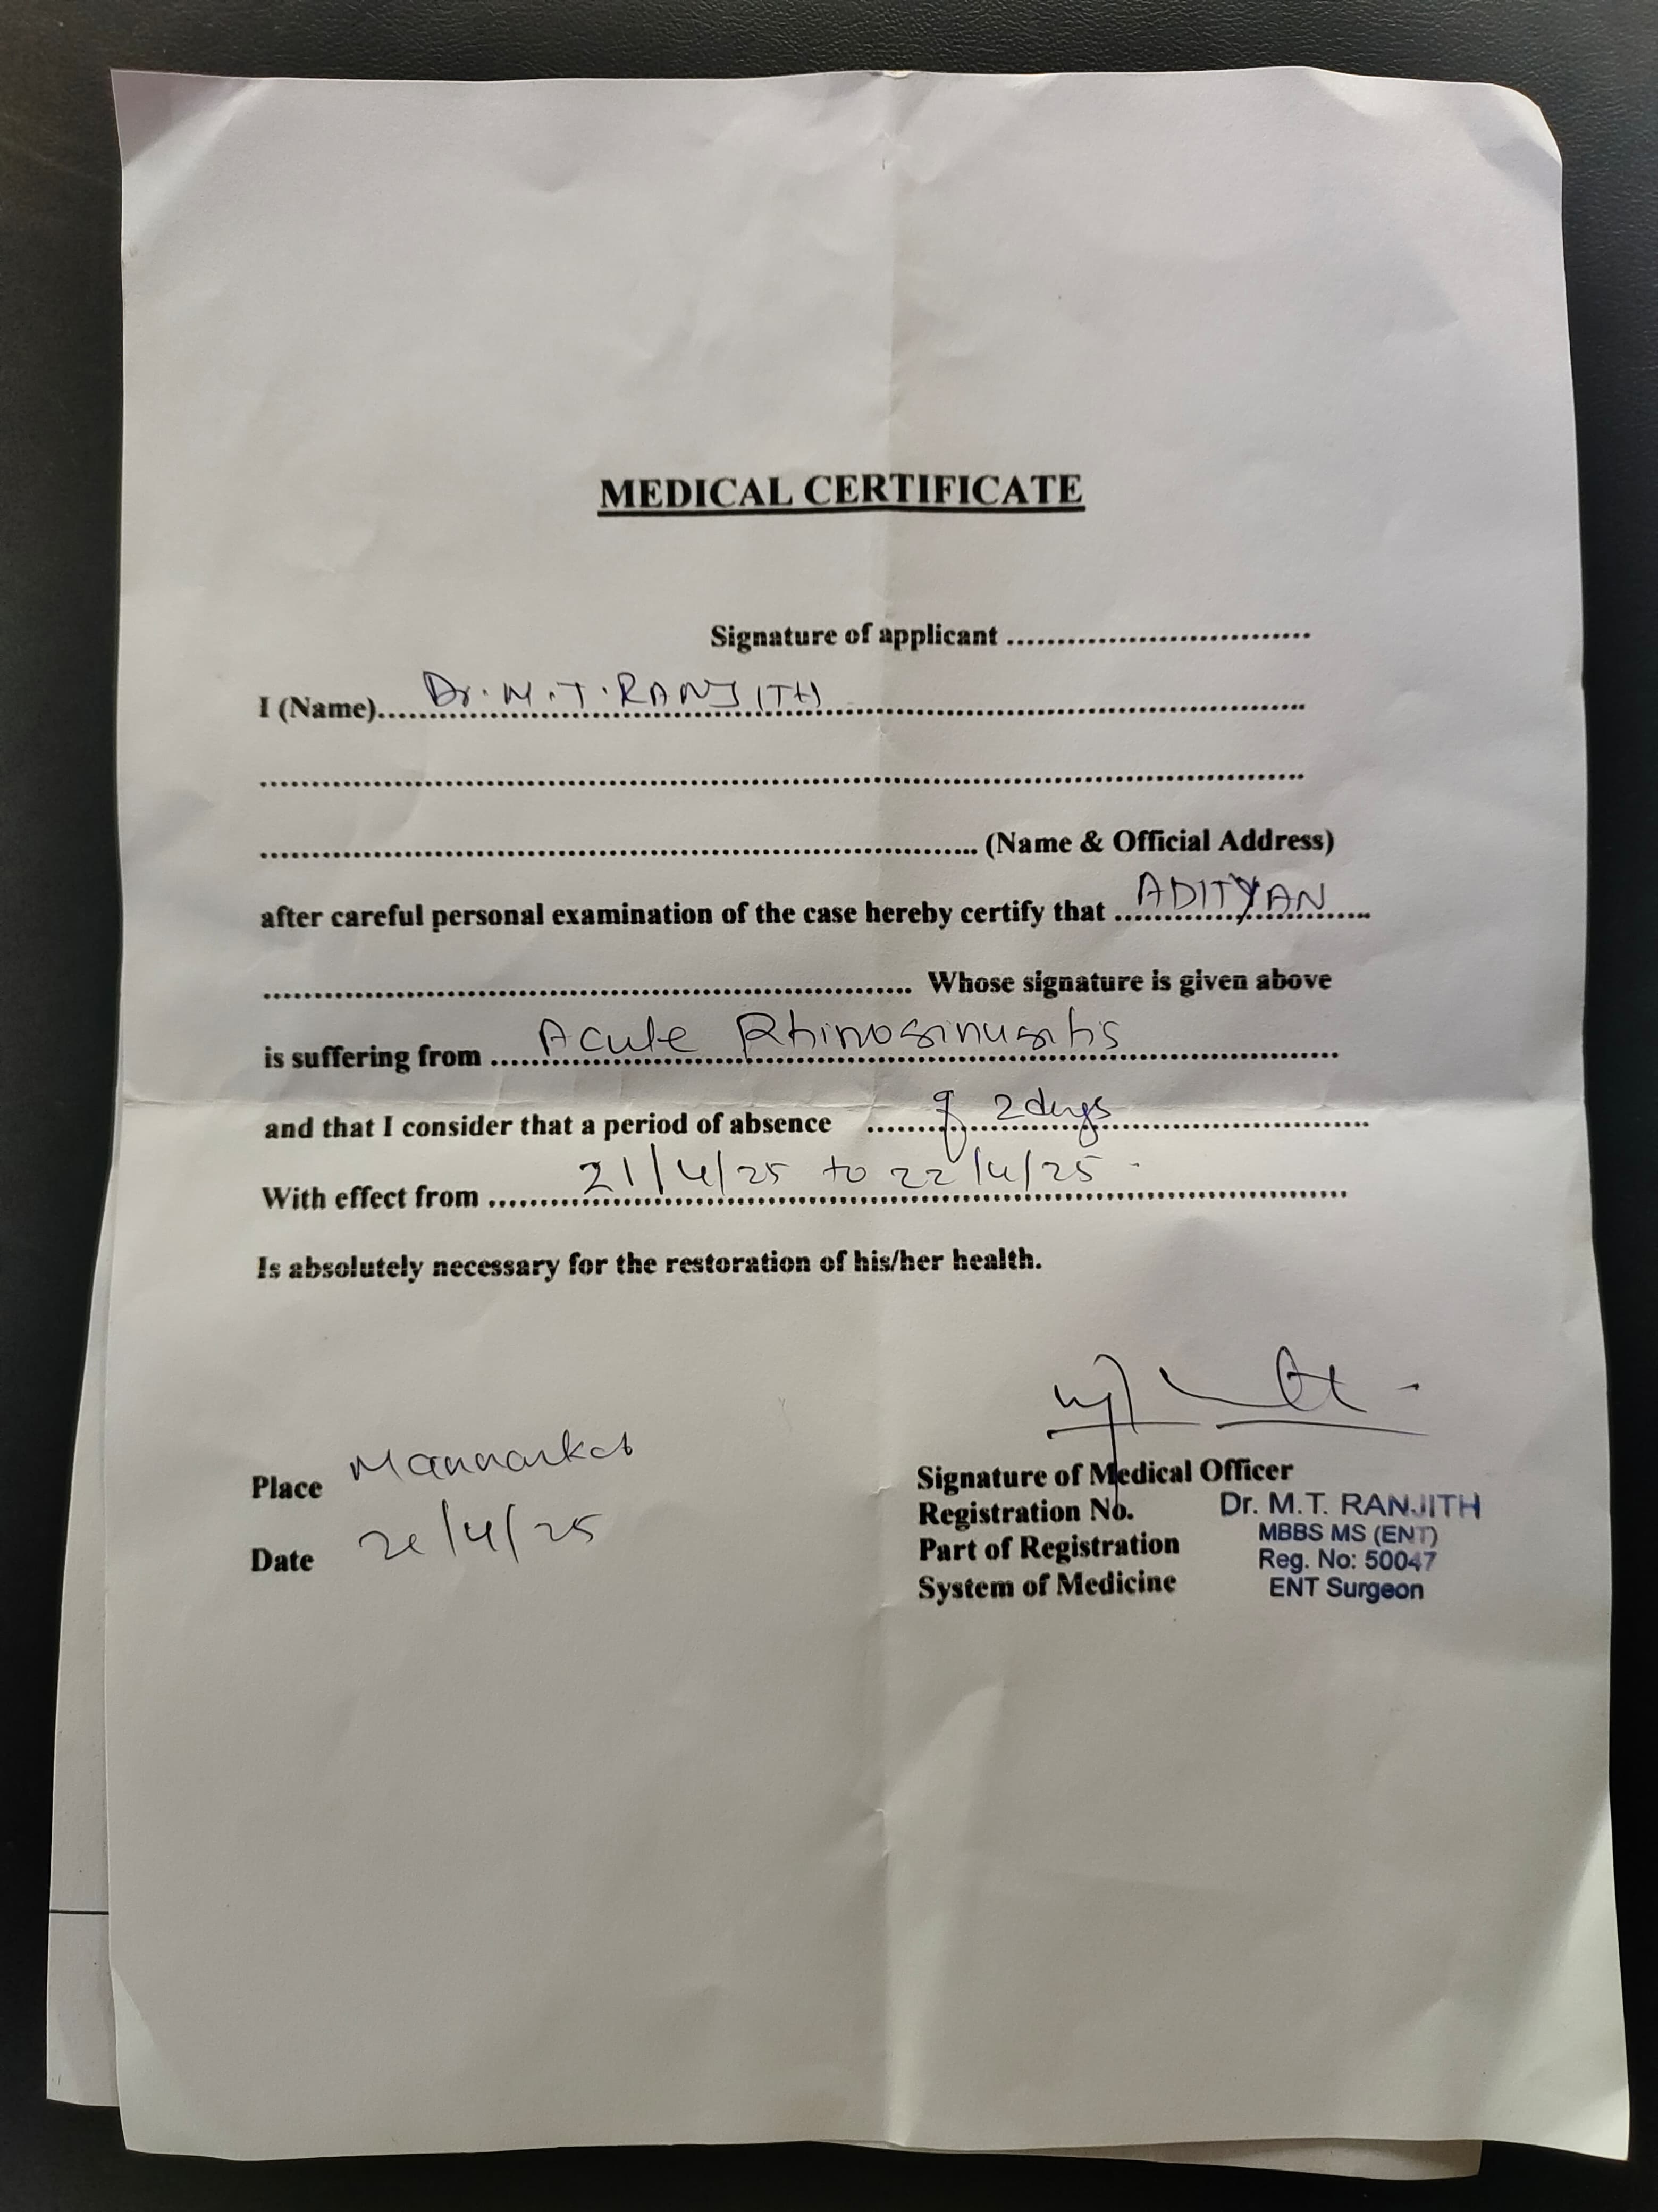 MEDICAL CERTIFICATE
Signature of applicant ..............................
I (Name).... Dr. M.T. RANJITH ..............................
....................................................................................................
...................................................................... (Name & Official Address)
after careful personal examination of the case hereby certify that ... ADITYAN ...
................................................................ Whose signature is given above
is suffering from ..... Acute Rhinosinusitis ..............................
and that I consider that a period of absence ....... of 2 days ..............................
With effect from ......... 21/4/25 to 22/4/25 ..............................
Is absolutely necessary for the restoration of his/her health.
Place Mannarkad
Date /4/25
Signature of Medical Officer
Registration No.
Part of Registration
System of Medicine
Dr. M.T. RANJITH
MBBS MS (ENT)
Reg. No: 50047
ENT Surgeon